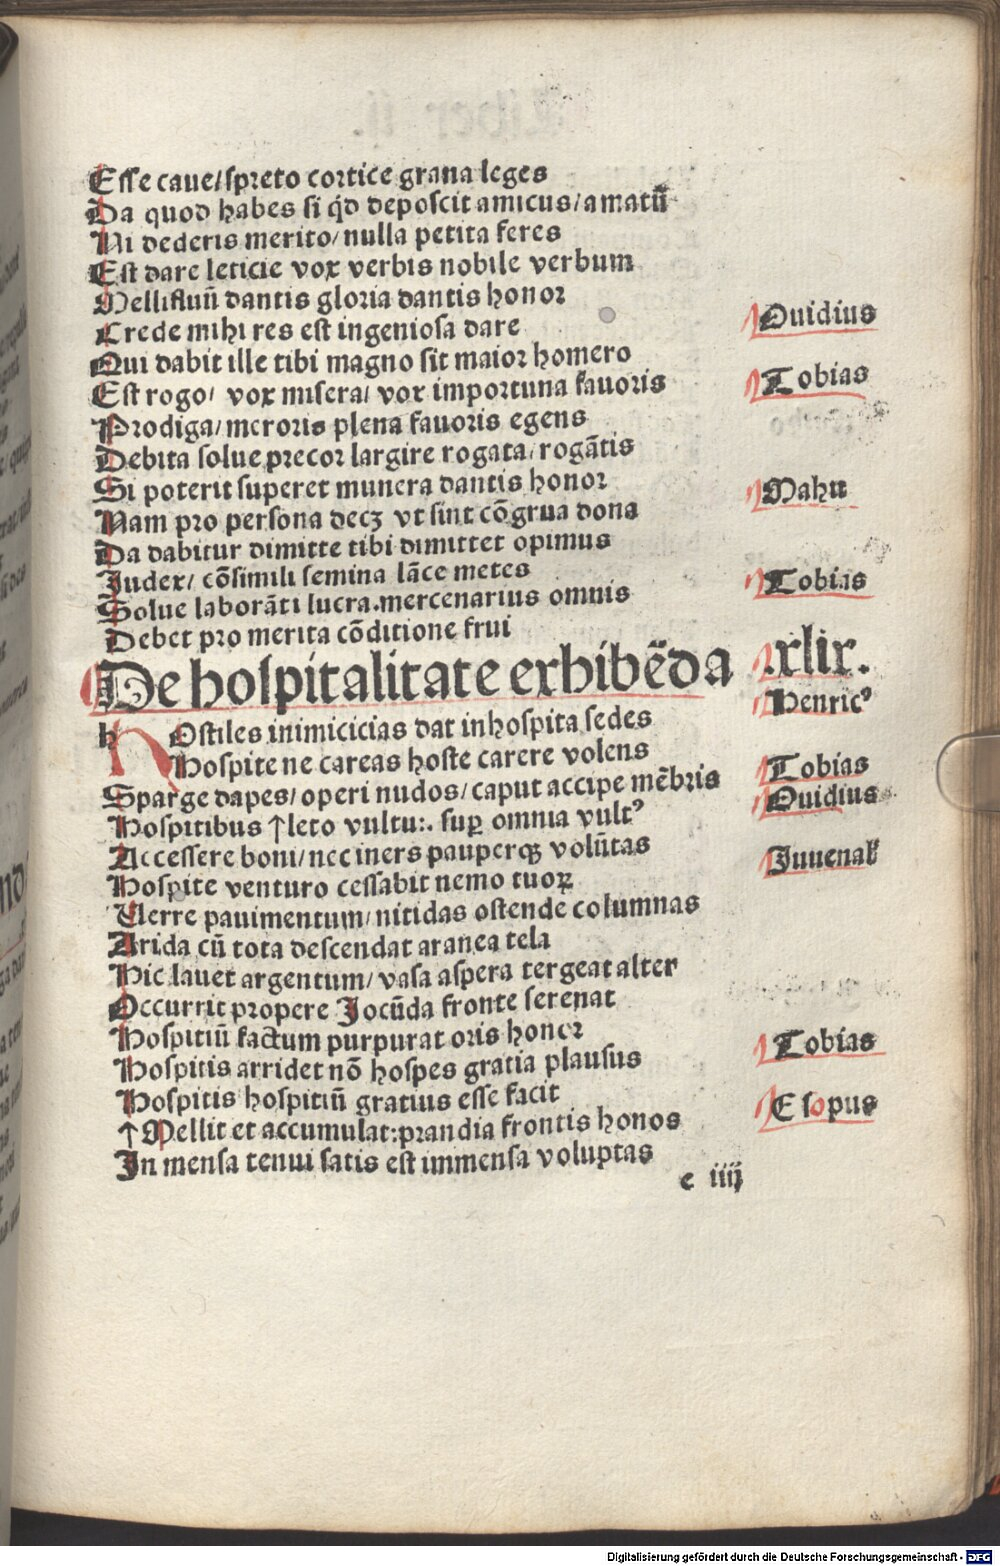 Esse caue/spreto cortice grana leges
Da quod habes si q̄d deposcit amicus/amatū
Ni dederis merito/nulla petita feres
Est dare leticie vox verbis nobile verbum
Mellifluū dantis gloria dantis honor
Crede mihi res est ingeniosa dare Ouidius
Qui dabit ille tibi magno sit maior homero
Est rogo/ vox misera/ vox importuna fauoris Tobias
Prodiga/meroris plena fauoris egens
Debita solue precor largire rogata/rogātis
Si poterit superet munera dantis honor Mahu
Nam pro persona decꝫ vt sint cōgrua dona
Da dabitur dimitte tibi dimittet opimus
Iudex/ cōsimili semina lāce metes Tobias
Solue laborāti lucra.mercenarius omnis
Debet pro merita cōditione frui
De hospitalitate exhibēda .xlix.
h Henricꝰ
Ostiles inimicicias dat inhospita sedes
Hospite ne careas hoste carere volens Tobias
Sparge dapes/operi nudos/caput accipe mēbris Ouidius
Hospitibus ↑leto vultu:. suꝑ omnia vultꝰ
Accessere boni/nec iners pauperqꝫ volūtas Iuuenal
Hospite venturo cessabit nemo tuoꝝ
Verre pauimentum/nitidas ostende columnas
Arida cū tota descendat aranea tela
Hic lauet argentum/vasa aspera tergeat alter
Occurrit propere Iocūda fronte serenat
Hospitiū factum purpurat oris honor Tobias
Hospitis arridet nō hospes gratia plausus
Hospitis hospitiū gratius esse facit Esopus
↑Mellit et accumulat:prandia frontis honos
In mensa tenui satis est immensa voluptas
e iiij
Digitalisierung gefördert durch die Deutsche Forschungsgemeinschaft - DFG